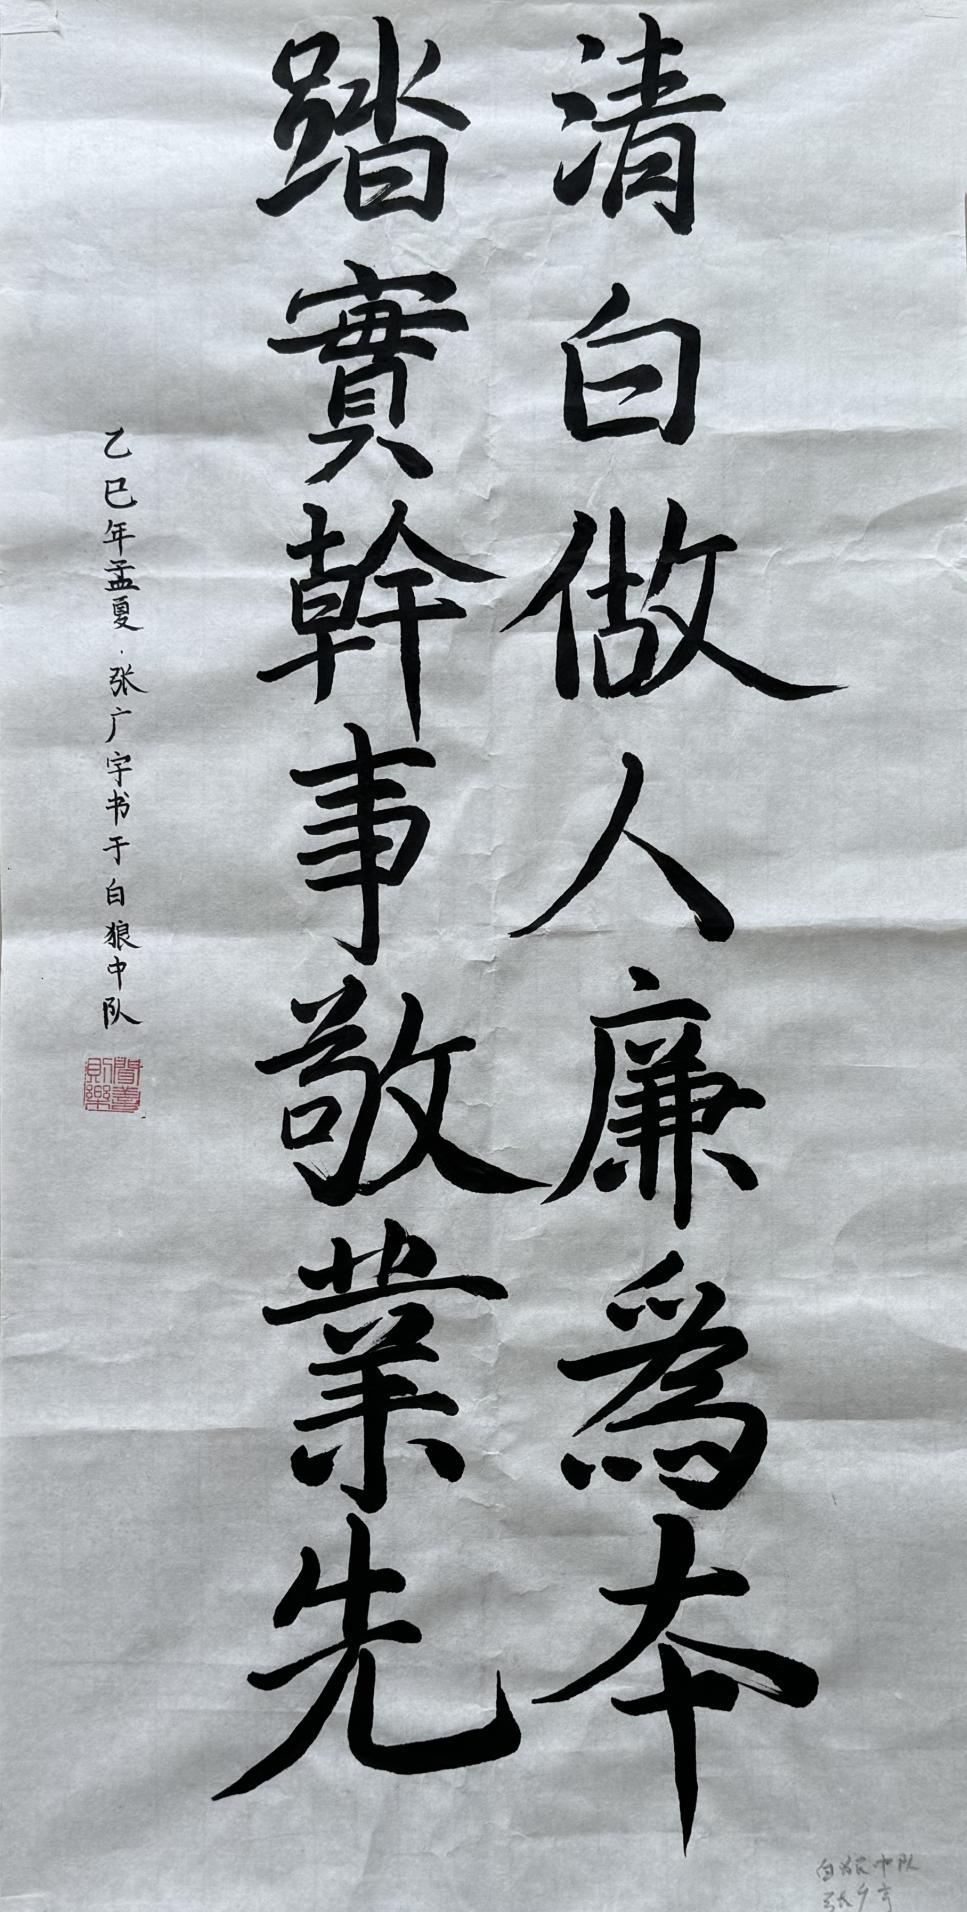 清白做人廉為本
踏實幹事敬業先
乙巳年孟夏·张广宇书于白狼中队
聞善則樂
白狼中队
张广宇